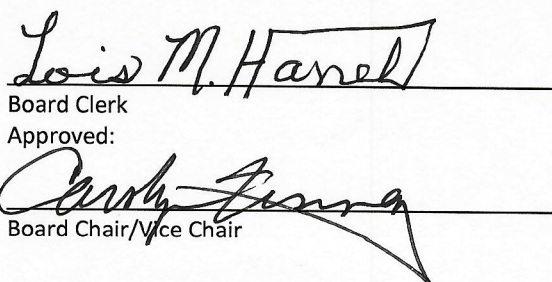 Lois M. Harrell
Board Clerk
Approved:
Carolyn
Board Chair/Vice Chair